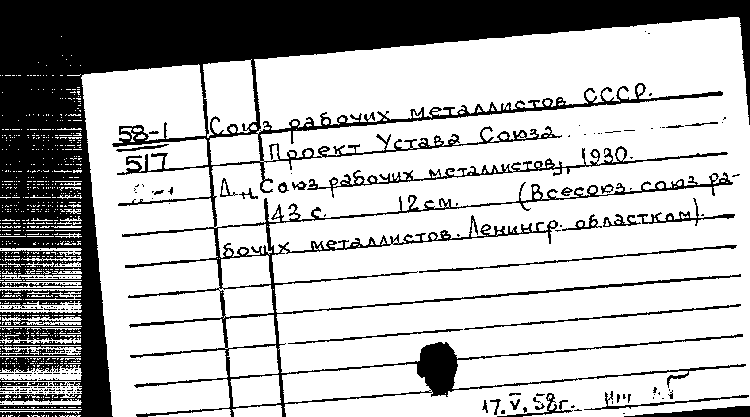 58-1 Союз рабочих металлистов СССР.
517 Проект Устава Союза
Л., Союз рабочих металлистов, 1930.
43 с. 12 см. (Всесоюз. союз ра-
бочих металлистов. Ленингр. областком).
17.V.58г.